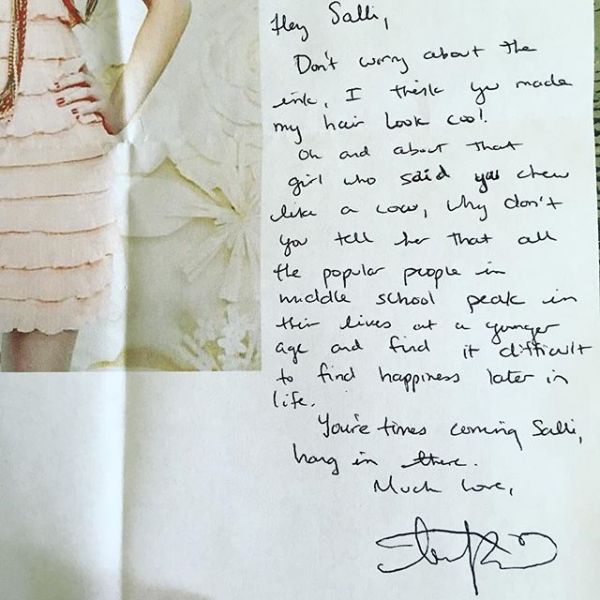 Hey Salli,
Don't worry about the
ink, I think you made
my hair look cool.
Oh and about that
girl who said you chew
like a cow, why don't
you tell her that all
the popular people in
middle school peak in
their lives at a younger
age and find it difficult
to find happiness later in
life.
You're times coming Salli,
hang in there.
Much love,